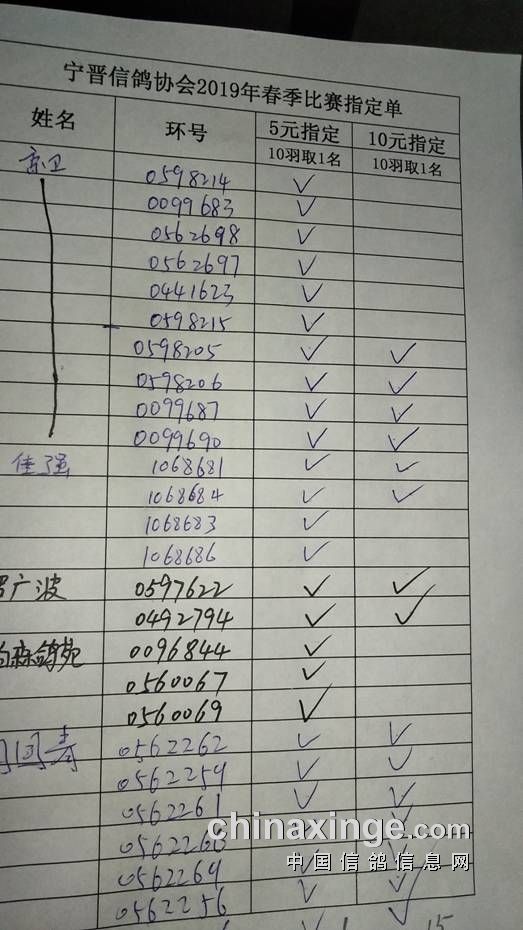 宁晋信鸽协会2019年春季比赛指定单
姓名 环号 5元指定 10元指定
10羽取1名 10羽取1名
京卫 0598214 ✓
0099683 ✓
0562698 ✓
0562697 ✓
0441623 ✓
0598215 ✓
0598205 ✓ ✓
0598206 ✓ ✓
0099687 ✓ ✓
0099690 ✓ ✓
佳强 1068681 ✓ ✓
1068684 ✓ ✓
1068683 ✓
1068686 ✓
广波 0597622 ✓ ✓
0492794 ✓ ✓
森鸽苑 0096844 ✓
0560067 ✓
0560069 ✓
0562262 ✓ ✓
0562259 ✓ ✓
0562261 ✓ ✓
chinaxinge.com
中国信鸽信息网
0562264 ✓ ✓
0562256 ✓ ✓
15